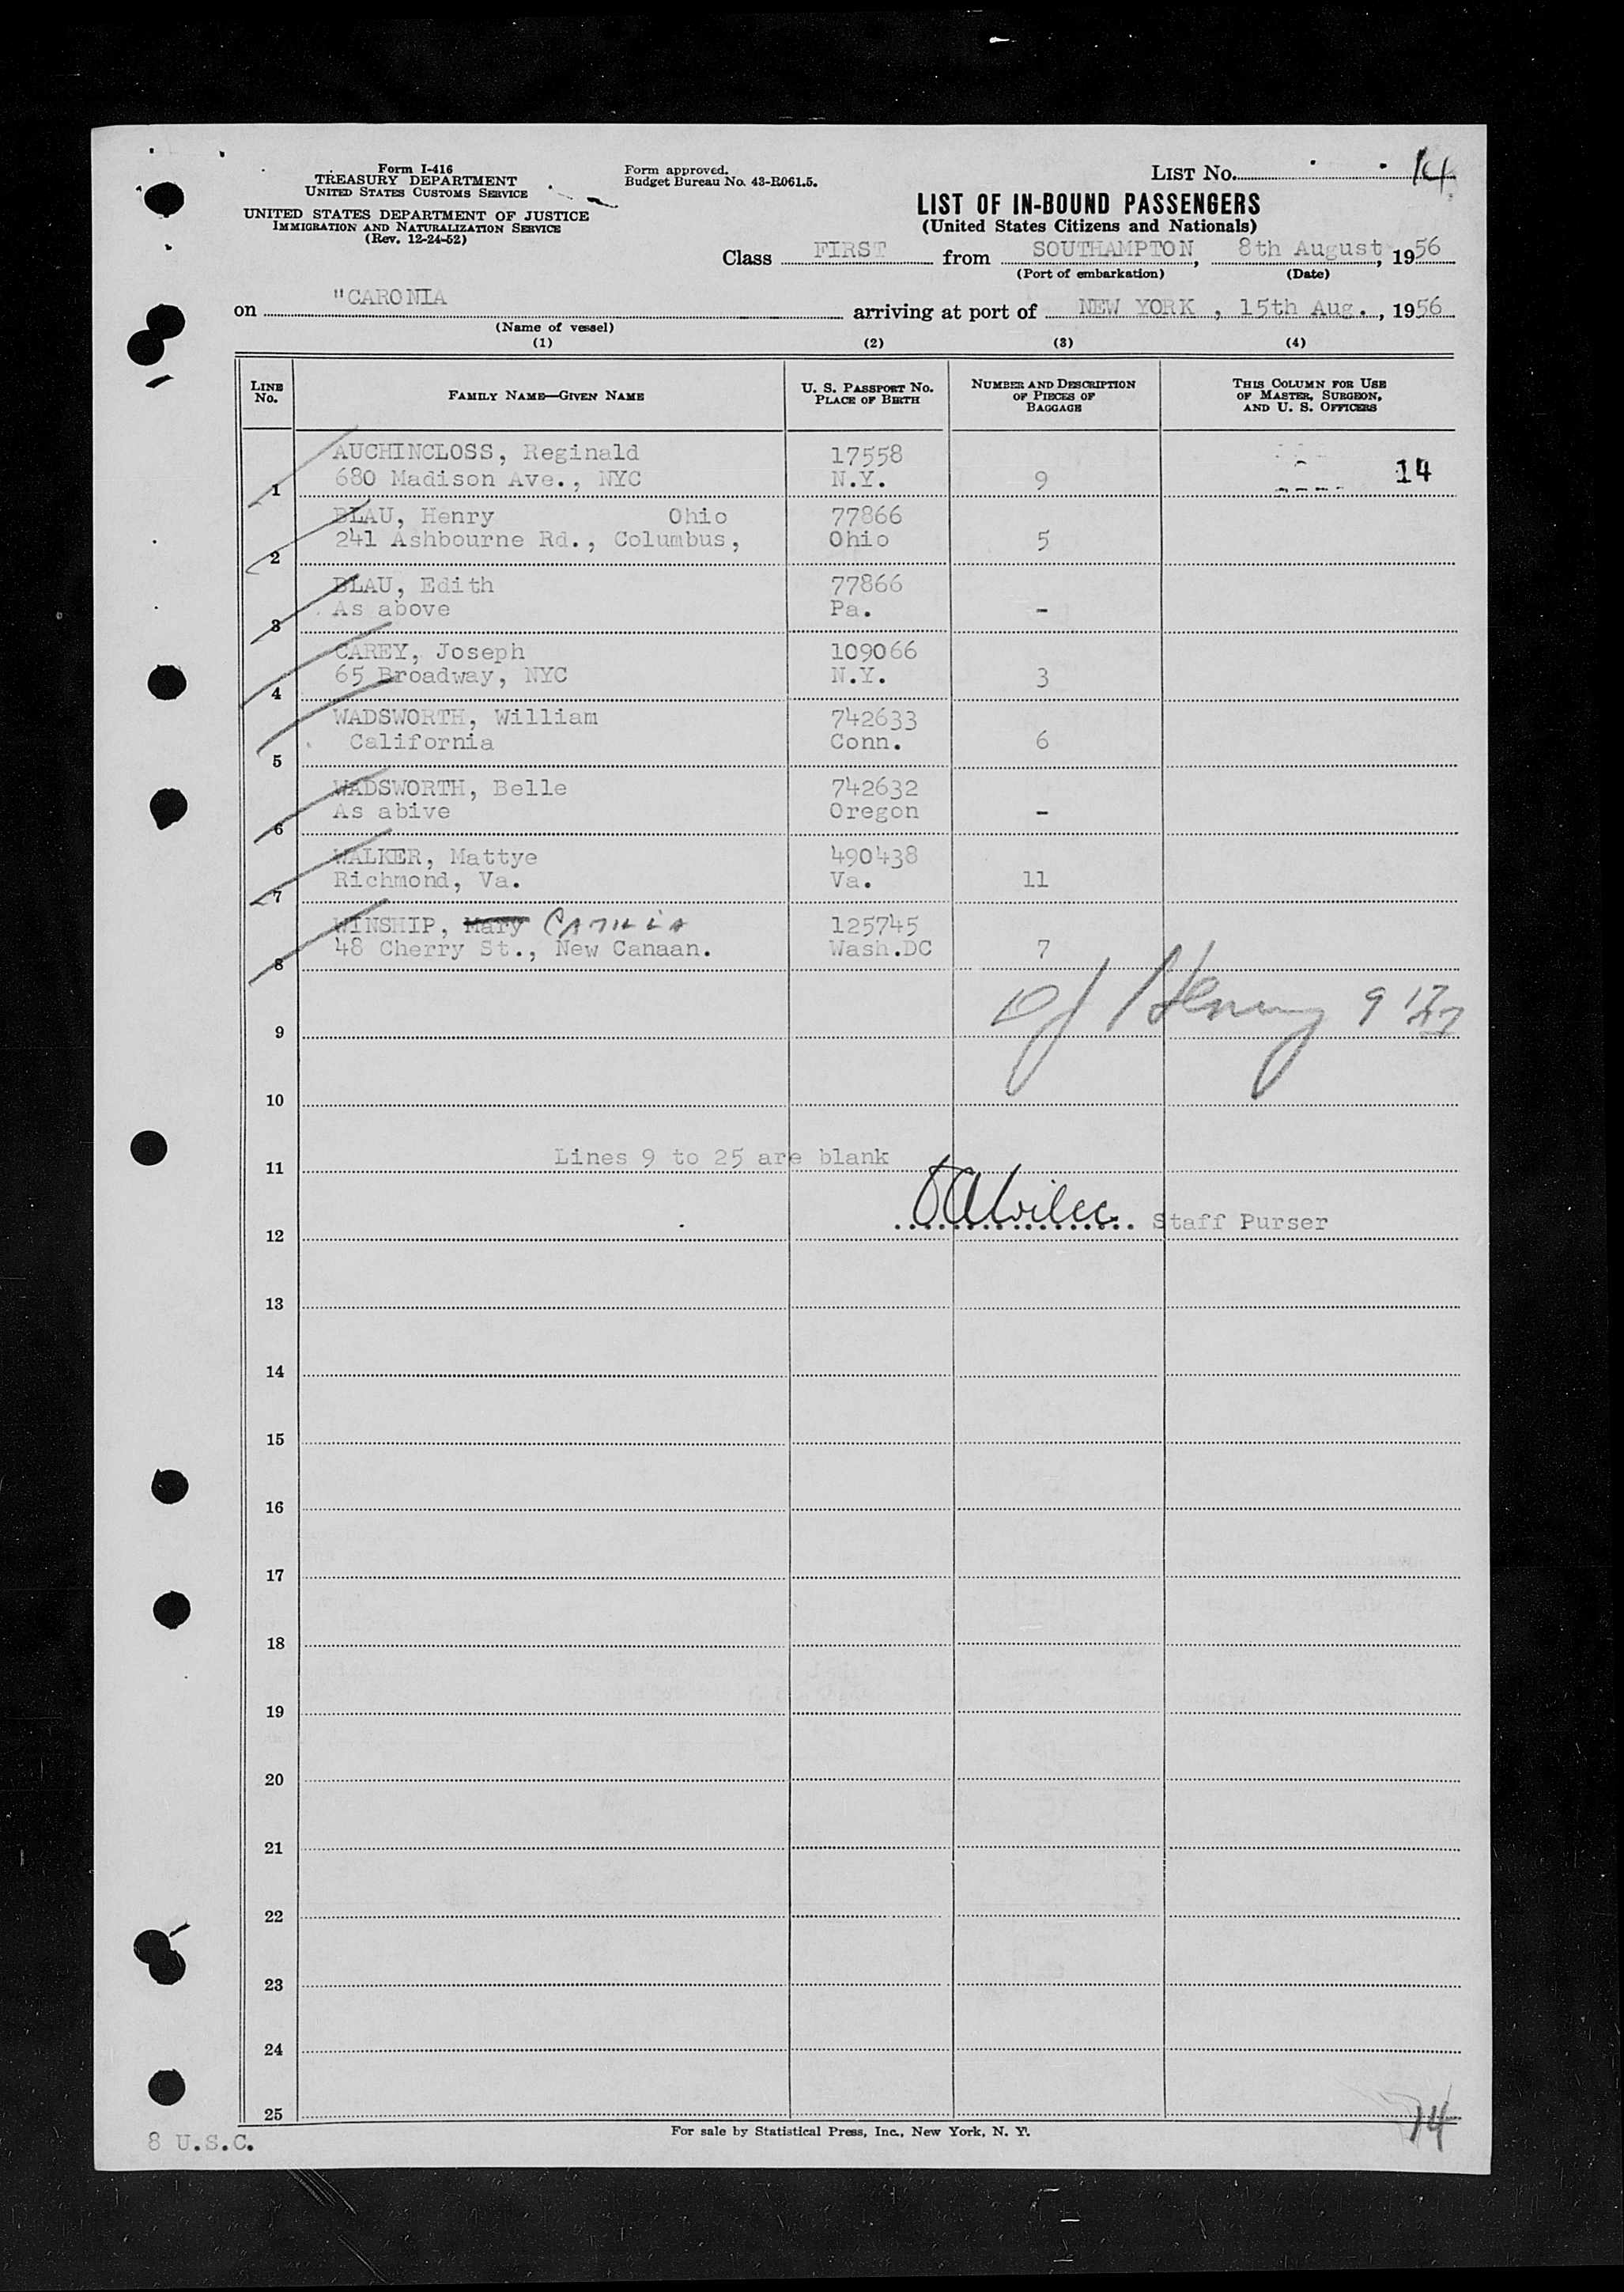 Form I-416
TREASURY DEPARTMENT
UNITED STATES CUSTOMS SERVICE
UNITED STATES DEPARTMENT OF JUSTICE
IMMIGRATION AND NATURALIZATION SERVICE
(Rev. 12-24-52)
Form approved.
Budget Bureau No. 43-R061.5.
LIST No. 14
LIST OF IN-BOUND PASSENGERS
(United States Citizens and Nationals)
Class FIRST from SOUTHAMPTON, 8th August, 1956
(Port of embarkation) (Date)
on "CARONIA arriving at port of NEW YORK, 15th Aug., 1956
(Name of vessel)
(1) (2) (3) (4)
LINE No. FAMILY NAME—GIVEN NAME U. S. PASSPORT No. PLACE OF BIRTH NUMBER AND DESCRIPTION OF PIECES OF BAGGAGE THIS COLUMN FOR USE OF MASTER, SURGEON, AND U. S. OFFICERS
AUCHINCLOSS, Reginald 17558 14
1 680 Madison Ave., NYC N.Y. 9
BLAU, Henry Ohio 77866
2 241 Ashbourne Rd., Columbus, Ohio 5
BLAU, Edith 77866
3 As above Pa. -
CAREY, Joseph 109066
4 65 Broadway, NYC N.Y. 3
WADSWORTH, William 742633
5 California Conn. 6
WADSWORTH, Belle 742632
6 As abive Oregon -
WALKER, Mattye 490438
7 Richmond, Va. Va. 11
WINSHIP, Mary 125745
8 48 Cherry St., New Canaan. Wash.DC 7
9 Henny 9
10
11 Lines 9 to 25 are blank
12 Staff Purser
13
14
15
16
17
18
19
20
21
22
23
24
25
For sale by Statistical Press, Inc., New York, N. Y.
8 U.S.C.
14